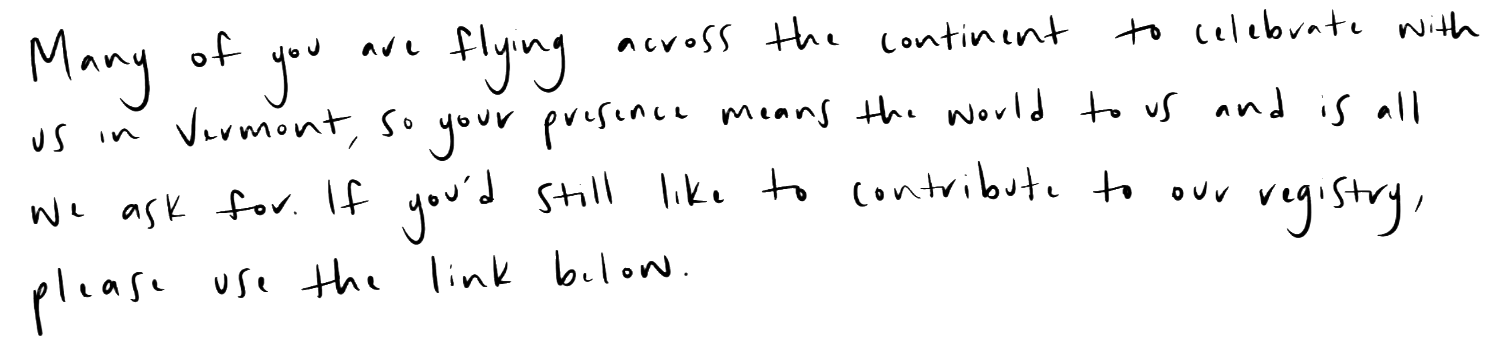 Many of you are flying across the continent to celebrate with
us in Vermont, so your presence means the world to us and is all
we ask for. If you'd still like to contribute to our registry,
please use the link below.